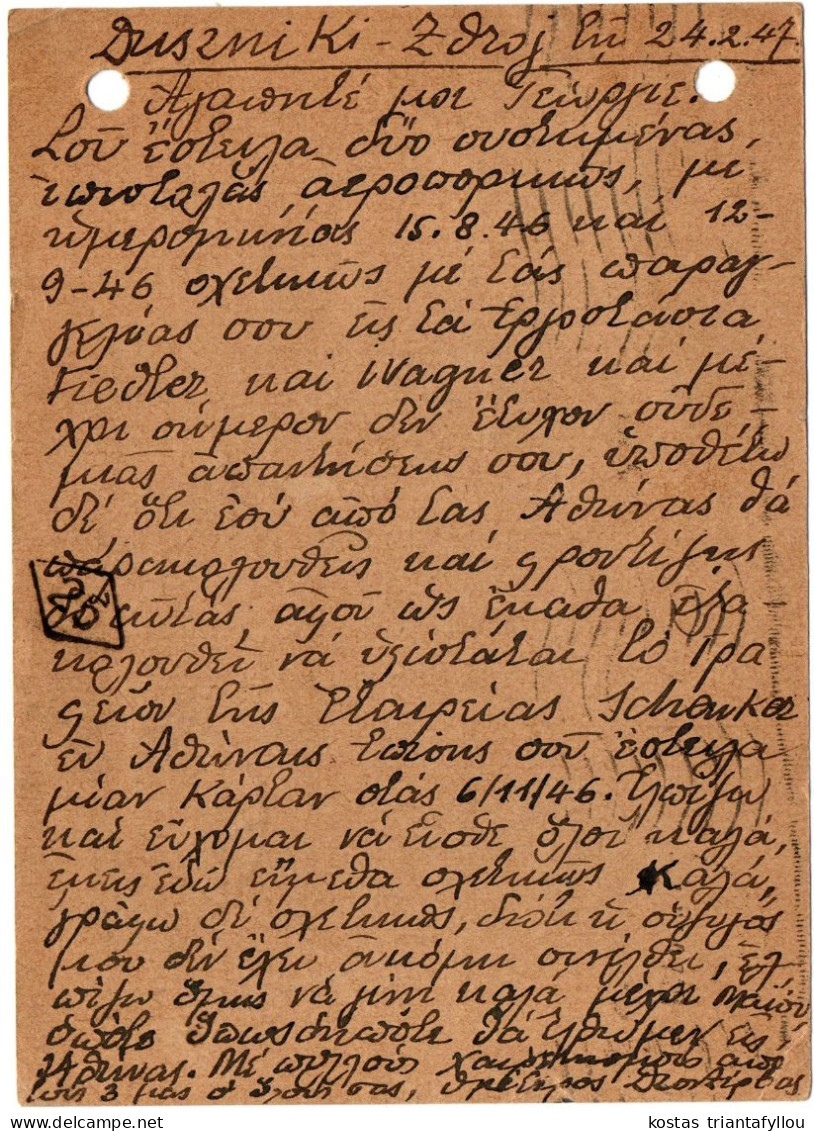 Duszniki-Zdroj τῇ 24.2.47.
Ἀγαπητέ μοι Γεώργιε.
Σοῦ ἔστειλα δύο συστημένας
ἐπιστολὰς ἀεροπορικῶς, μὲ
ἡμερομηνίας 15.8.46 καὶ 12-
9-46 σχετικῶς μὲ τὰς παραγ-
γελίας σου εἰς τὰ Ἐργοστάσια
Fiedler καὶ Wagner καὶ μέ-
χρι σήμερον δὲν ἔτυχον οὐδε-
μιᾶς ἀπαντήσεώς σου, ὑποθέτω
δὲ ὅτι ἐσὺ ἀπὸ τὰς Ἀθήνας θὰ
παρακολουθεῖς καὶ φροντίζεις
αὐτάς, ἀφοῦ ὡς ἔμαθα
κολουθεῖ νὰ ὑφίσταται τὸ Γρα
φεῖον τῆς Ἑταιρείας Schenker
ἐν Ἀθήναις ἐπίσης σοῦ ἔστειλα
μίαν Κάρταν στὰς 6/11/46. Ἐλπίζω
καὶ εὔχομαι νὰ εἶσθε ὅλοι καλά,
ἐμεῖς ἐδῶ εἴμεθα σχετικῶς Καλά,
γράφω δὲ σχετικῶς, διότι ἡ σύζυγός
μου δὲν ἔχει ἀκόμη συνέλθει, ἐλ
πίζω ὅμως νὰ γίνῃ καλὰ μέχρι Μαΐου
ὁπότε ὁπωσδήποτε θὰ ἔλθωμεν εἰς
Ἀθήνας. Μὲ πολλοὺς χαιρετισμοὺς ἀπὸ
τοὺς 3 μας σ' ὅλους σας,
kostas triantafyllou